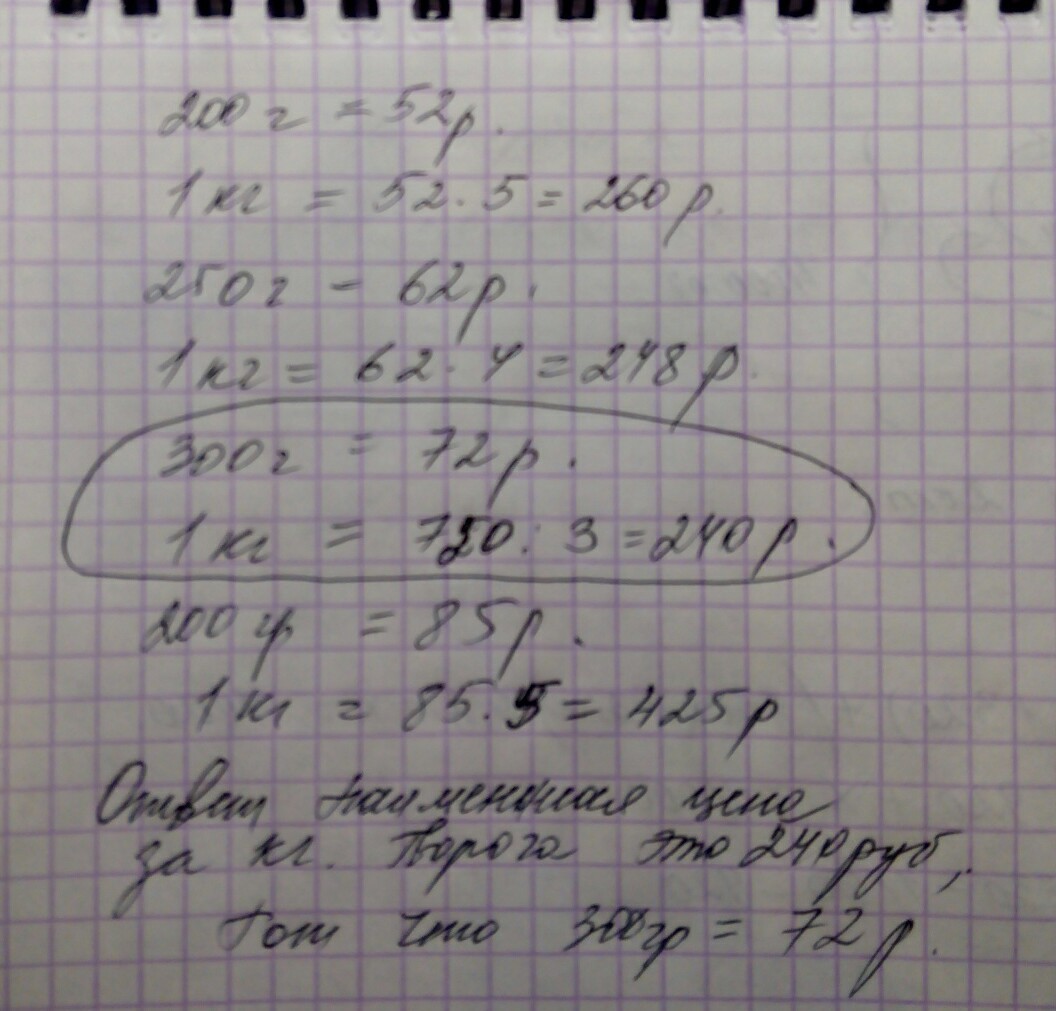 200 г = 52р.
1 кг = 52 · 5 = 260 р.
250 г - 62р.
1 кг = 62 · 4 = 248 р.
300 г = 72 р.
1 кг = 720 : 3 = 240 р.
200 гр = 85 р.
1 кг = 85 · 5 = 425 р
Ответ наименьшая цена
за кг. творога это 240 руб,
тот что 300 гр = 72 р.